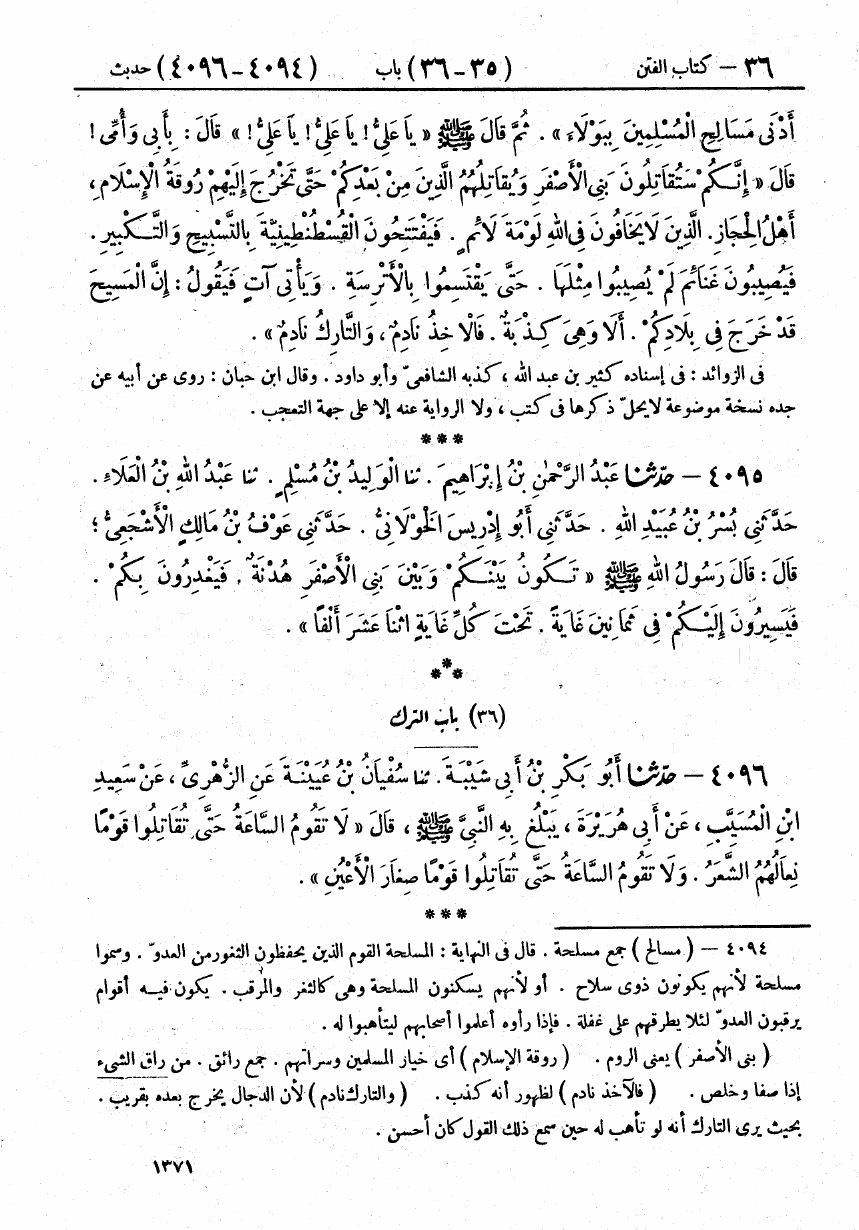 ٣٦ — كتاب الفتن (٣٥-٣٦) باب (٤٠٩٤-٤٠٩٦) حديث
أَدْنَى مَسَالِحِ الْمُسْلِمِينَ بِبَوْلَاءَ » . ثُمَّ قَالَ ﷺ « يَا عَلِيُّ ! يَا عَلِيُّ ! يَا عَلِيُّ ! » قَالَ : بِأَبِى وَأُمِّى !
قَالَ « إِنَّكُمْ سَتُقَاتِلُونَ بَنِى الْأَصْفَرِ وَيُقَاتِلُهُمُ الَّذِينَ مِنْ بَعْدِكُمْ حَتَّى تَخْرُجَ إِلَيْهِمْ رُوقَةُ الْإِسْلَامِ ،
أَهْلُ الْحِجَازِ . الَّذِينَ لَا يَخَافُونَ فِى اللهِ لَوْمَةَ لَائِمٍ . فَيَفْتَتِحُونَ الْقُسْطُنْطِينِيَّةَ بِالتَّسْبِيحِ وَالتَّكْبِيرِ .
فَيُصِيبُونَ غَنَائِمَ لَمْ يُصِيبُوا مِثْلَهَا . حَتَّى يَقْتَسِمُوا بِالْأَتْرِسَةِ . وَيَأْتِى آتٍ فَيَقُولُ : إِنَّ الْمَسِيحَ
قَدْ خَرَجَ فِى بِلَادِكُمْ . أَلَا وَهِىَ كِذْبَةٌ . فَالْآخِذُ نَادِمٌ ، وَالتَّارِكُ نَادِمٌ » .
فى الزوائد : فى إسناده كثير بن عبد الله ، كذبه الشافعىّ وأبو داود . وقال ابن حبان : روى عن أبيه عن
جده نسخة موضوعة لا يحلّ ذكرها فى كتب ، ولا الرواية عنه إلا على جهة التعجب .
***
٤٠٩٥ — حَدَّثَنَا عَبْدُ الرَّحْمٰنِ بْنُ إِبْرَاهِيمَ . ثنا الْوَلِيدُ بْنُ مُسْلِمٍ . ثنا عَبْدُ اللهِ بْنُ الْعَلَاءِ .
حَدَّثَنِى بُسْرُ بْنُ عُبَيْدِ اللهِ . حَدَّثَنِى أَبُو إِدْرِيسَ الْخَوْلَانِىُّ . حَدَّثَنِى عَوْفُ بْنُ مَالِكٍ الْأَشْجَعِىُّ ؛
قَالَ : قَالَ رَسُولُ اللهِ ﷺ « تَكُونُ بَيْنَكُمْ وَبَيْنَ بَنِى الْأَصْفَرِ هُدْنَةٌ . فَيَغْدِرُونَ بِكُمْ .
فَيَسِيرُونَ إِلَيْكُمْ فِى ثَمَانِينَ غَايَةً . تَحْتَ كُلِّ غَايَةٍ اثْنَا عَشَرَ أَلْفًا » .
***
(٣٦) باب الترك
٤٠٩٦ — حَدَّثَنَا أَبُو بَكْرِ بْنُ أَبِى شَيْبَةَ . ثنا سُفْيَانُ بْنُ عُيَيْنَةَ عَنِ الزُّهْرِىِّ ، عَنْ سَعِيدِ
ابْنِ الْمُسَيَّبِ ، عَنْ أَبِى هُرَيْرَةَ ، يَبْلُغُ بِهِ النَّبِىَّ ﷺ ، قَالَ « لَا تَقُومُ السَّاعَةُ حَتَّى تُقَاتِلُوا قَوْمًا
نِعَالُهُمُ الشَّعَرُ . وَلَا تَقُومُ السَّاعَةُ حَتَّى تُقَاتِلُوا قَوْمًا صِغَارَ الْأَعْيُنِ » .
***
٤٠٩٤ — ( مسالح ) جمع مسلحة . قال فى النهاية : المسلحة القوم الذين يحفظون الثغور من العدوّ . وسموا
مسلحة لأنهم يكونون ذوى سلاح . أو لأنهم يسكنون المسلحة وهى كالثغر والمرقب . يكون فيه أقوام
يرقبون العدوّ لئلا يطرقهم على غفلة . فإذا رأوه أعلموا أصحابهم ليتأهبوا له .
( بنى الأصفر ) يعنى الروم . ( روقة الإسلام ) أى خيار المسلمين وسراتهم . جمع رائق . من راق الشىء
إذا صفا وخلص . ( فالآخذ نادم ) لظهور أنه كذب . ( والتارك نادم ) لأن الدجال يخرج بعده بقريب .
بحيث يرى التارك أنه لو تأهب له حين سمع ذلك القول كان أحسن .
١٣٧١